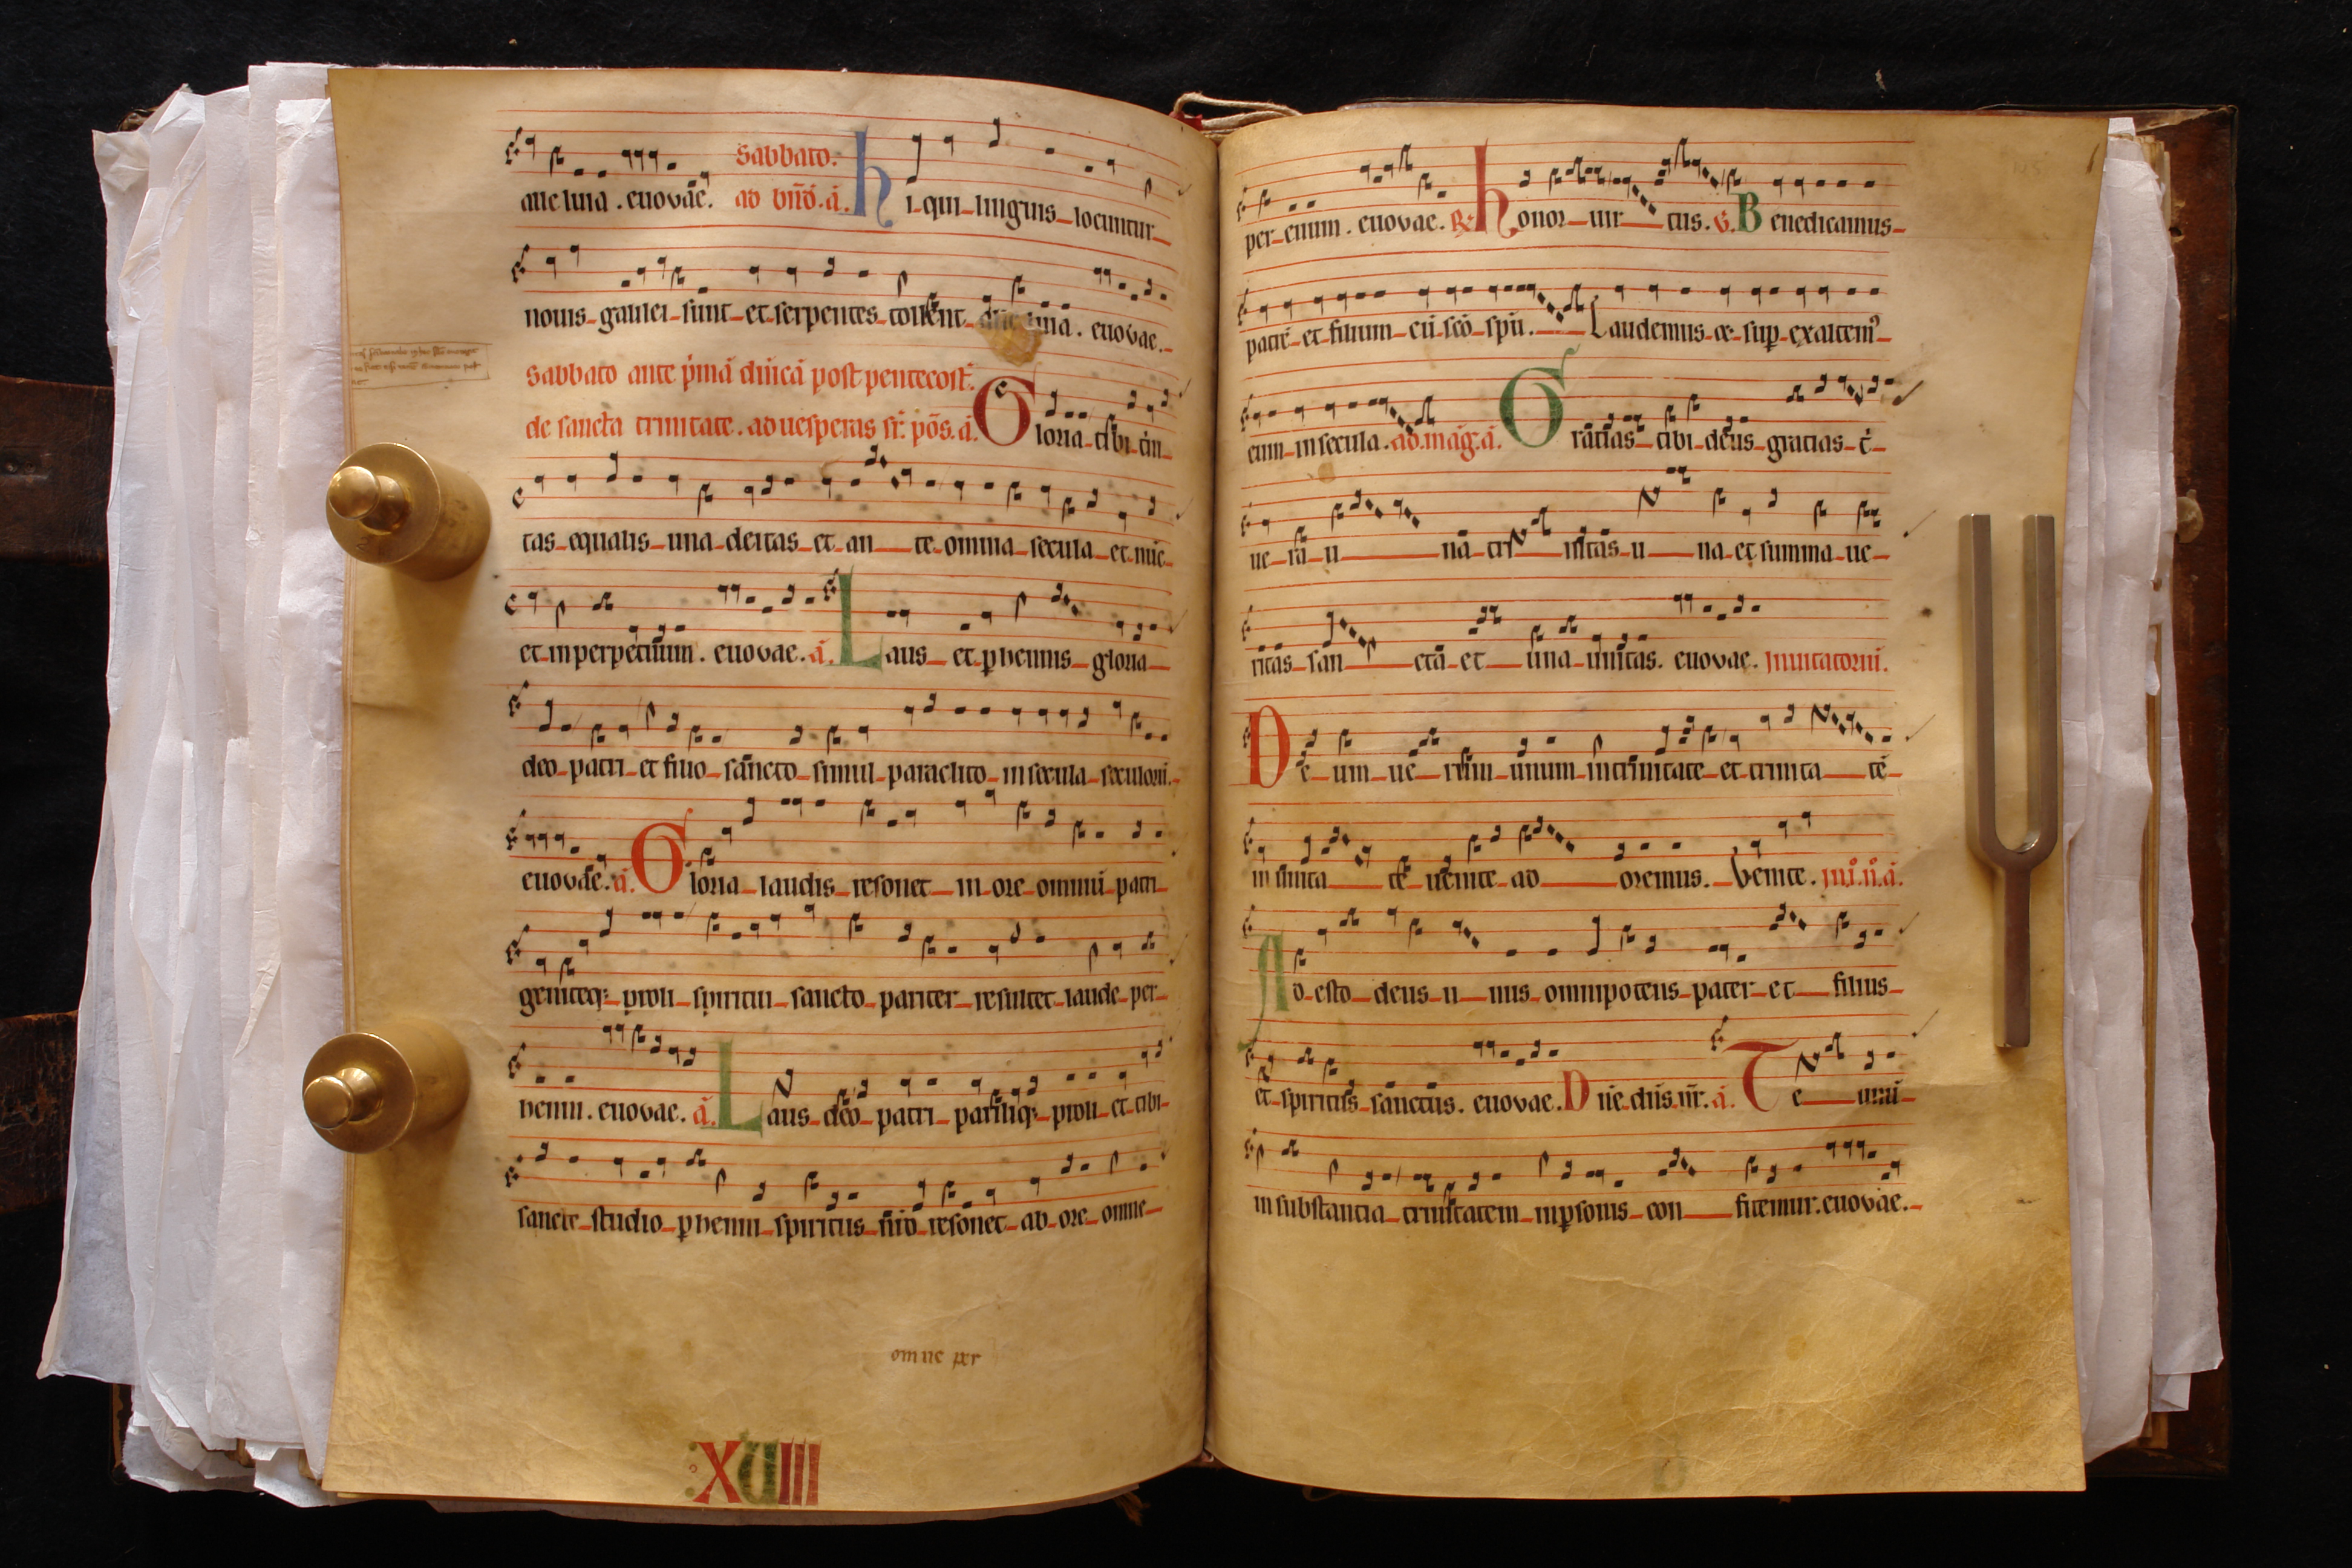 alleluia. euovae. Sabbato. ad bn̄d. a̅. hi qui linguis locuntur
nouis galilei sunt et serpentes tollent alleluia. euovae.
Sabbato ante p̄mā dn̄icā post pentecost̄.
de sancta trinitate. ad uesperas sr̄. pōs. a̅. Gloria tibi t̄ni
tas equalis una deitas et ante omnia secula et nūc
et in perpetuum. euovae. a̅. Laus et ꝑhennis gloria
deo patri et filio sancto simul paraclito in secula seculorū.
euovae. a̅. Gloria laudis resonet in ore omniū patri
geniteqȝ proli spiritui sancto pariter resultet laude per
henni. euovae. a̅. Laus deo patri pariliqȝ proli et tibi
sancte studio ꝑhenni spiritus nr̄o resonet ab ore omne
omne per
XVIII
per euum. euovae. ℟. honor uirtus. v̄. Benedicamus
patrē et filium cū sc̄o spū. Laudemus et suꝑ exaltemꝰ
eum in secula. ad. māg. a̅. Gratias tibi deus gratias t̄
uera una trinitas una et summa ue
ritas sancta et una unitas. euovae. Inuitatoriū.
Deum uerum unum in trinitate et trinitatē
in unitate uenite adoremus. Venite. in .i. n̊. a̅.
Adesto deus unus omnipotens pater et filius
et spiritus sanctus. euovae. Dn̄e dn̄s nr̄. a̅. Te unū
in substantia trinitatem in ꝑsonis confitemur. euovae.